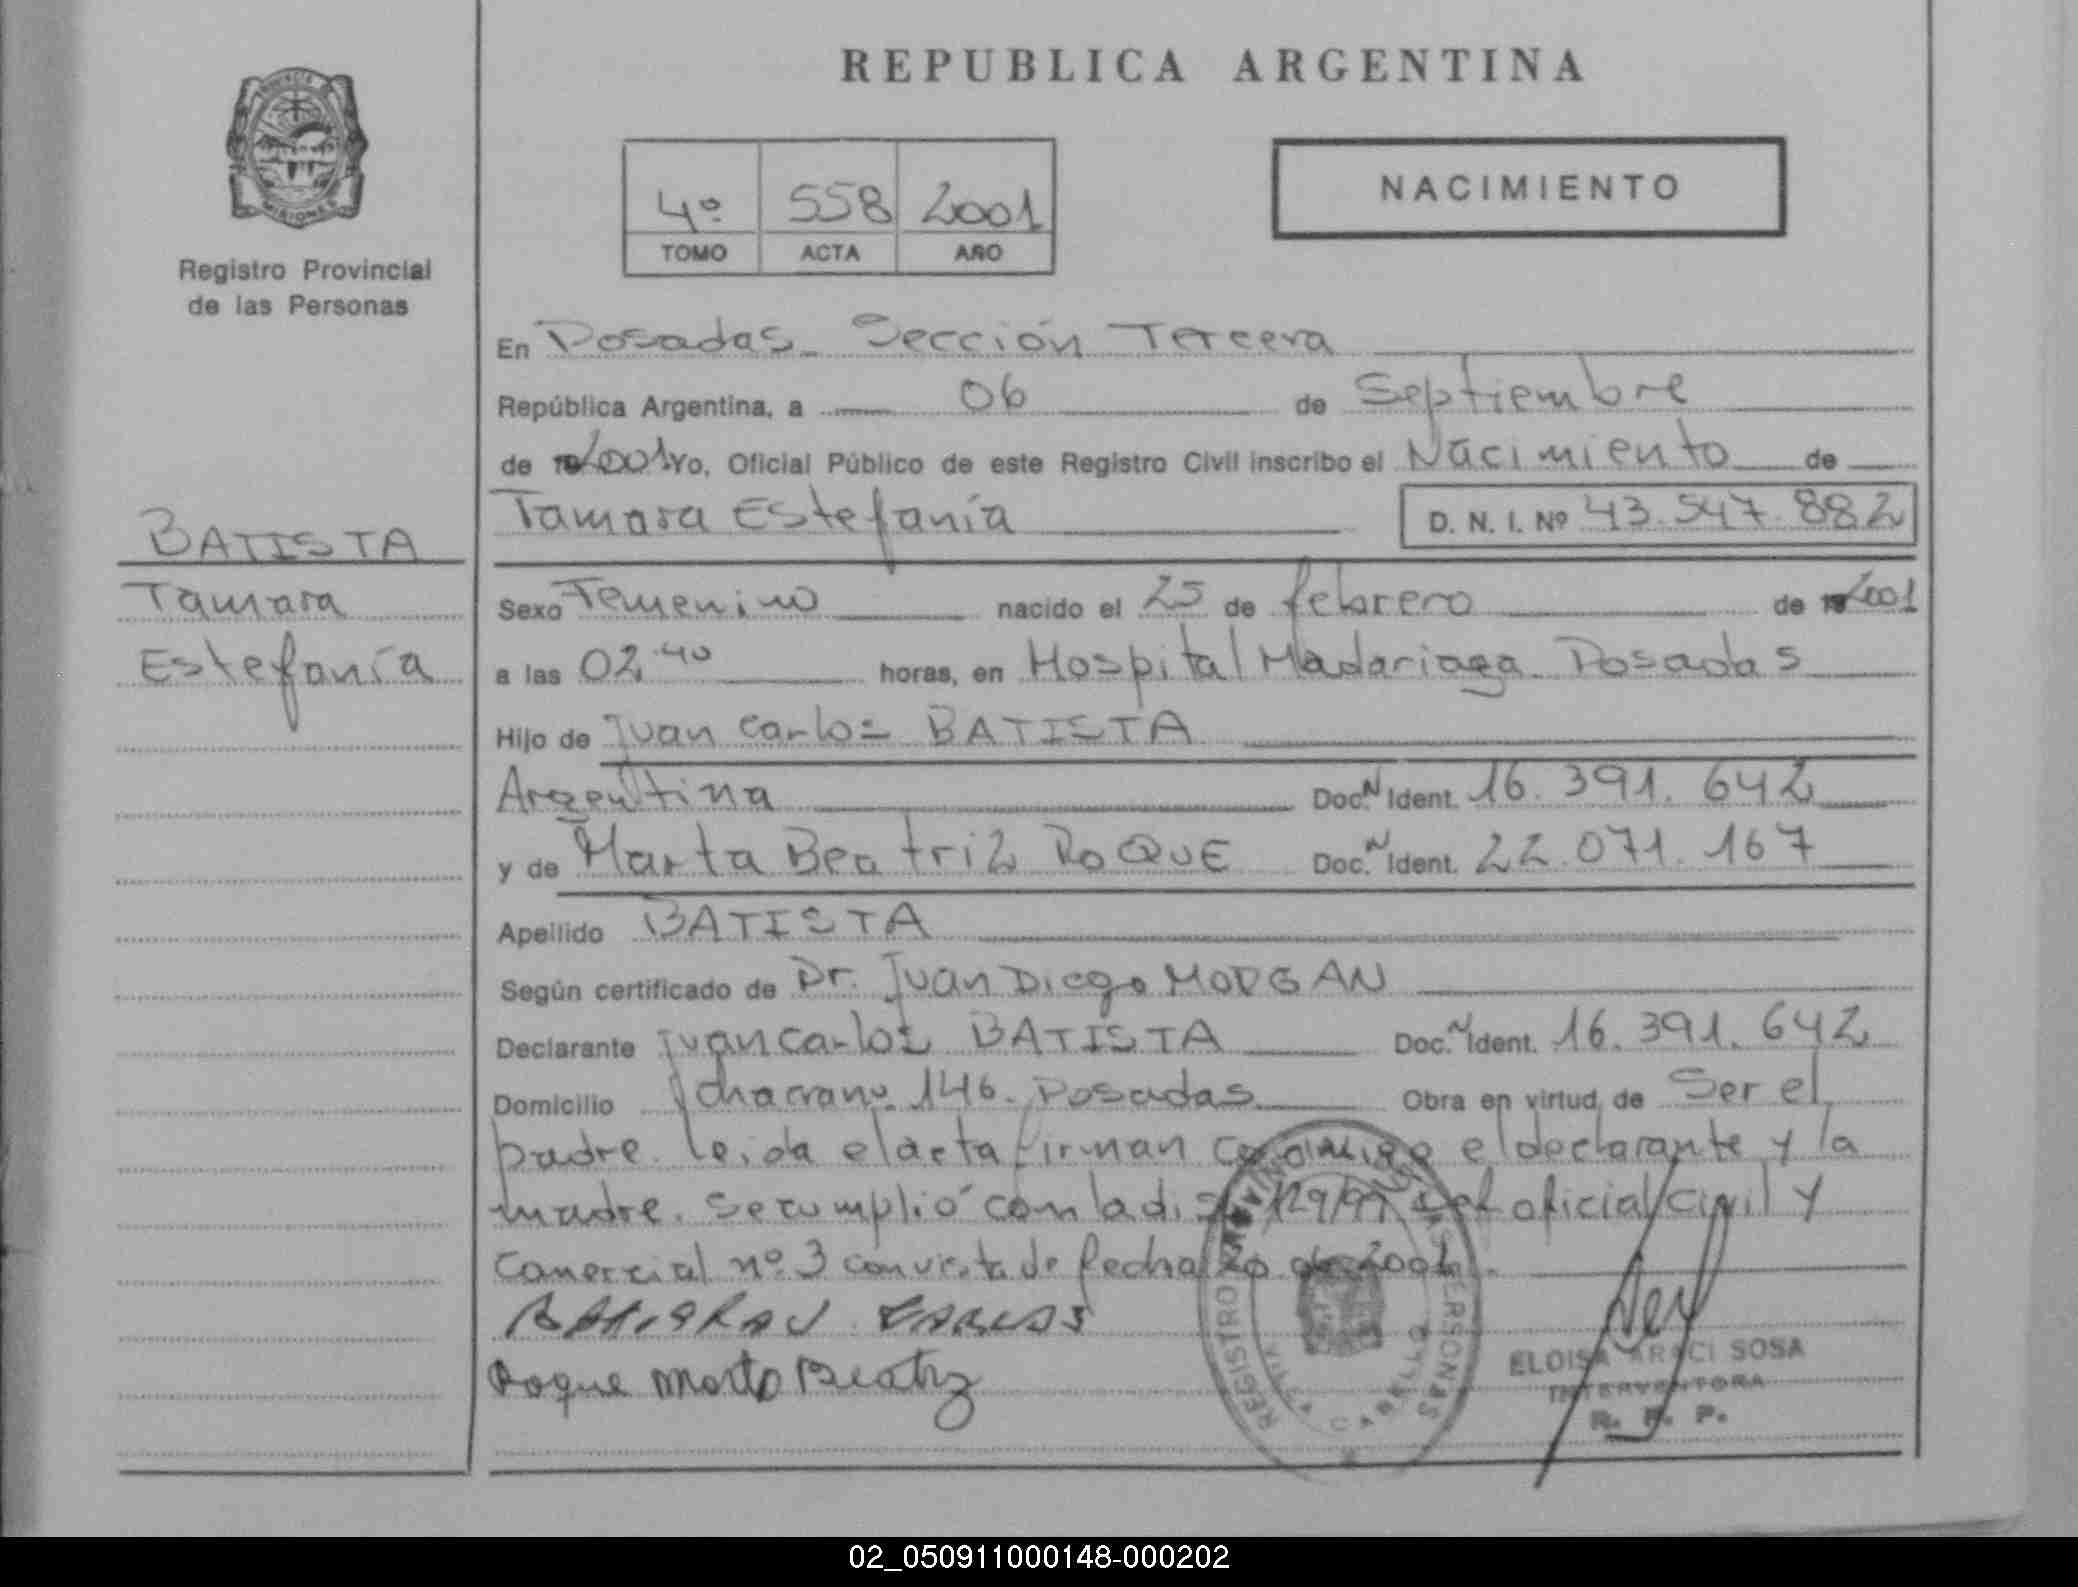 REPUBLICA ARGENTINA
MISIONES
Registro Provincial
de las Personas
4º 558 2001
TOMO ACTA AÑO
NACIMIENTO
En Posadas - Sección Tercera
República Argentina, a 06 de Septiembre
de 2001 Yo, Oficial Público de este Registro Civil inscribo el Nacimiento de
Tamara Estefanía D. N. I. Nº 43.547.882
BATISTA
Tamara
Estefanía
Sexo Femenino nacido el 25 de febrero de 2001
a las 02.40 horas, en Hospital Madariaga Posadas
Hijo de Juan Carlos BATISTA
Argentina Doc. N Ident. 16.391.642
y de Marta Beatriz ROQUE Doc. N Ident. 22.071.167
Apellido BATISTA
Según certificado de Dr. Juan Diego MORGAN
Declarante Juan Carlos BATISTA Doc. N Ident. 16.391.642
Domicilio 146. Posadas Obra en virtud de Ser el
padre. leida el acta firman conmigo el declarante y la
madre. Se cumplió con la 129/97 oficial Civil y
Comercial nº 3 con vista de fecha
Roque Marta Beatriz
REGISTRO PERSONAS
CABELLO
ELOISA ARACI SOSA
INTERVENTORA
R. P. P.
02_050911000148-000202